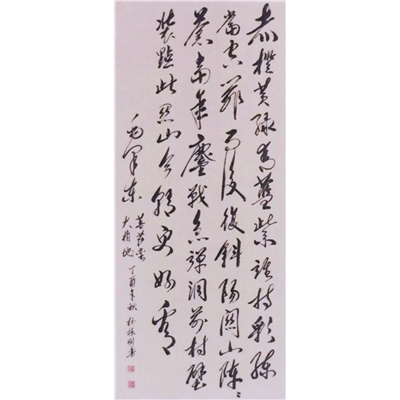 赤橙黄緑青藍紫誰持彩練
當空舞雨後復斜陽関山陣〻
蒼當年鏖戰急彈洞前村壁
裝點此関山今朝更好看
毛泽东
菩薩蛮
大柏地
丁酉年秋